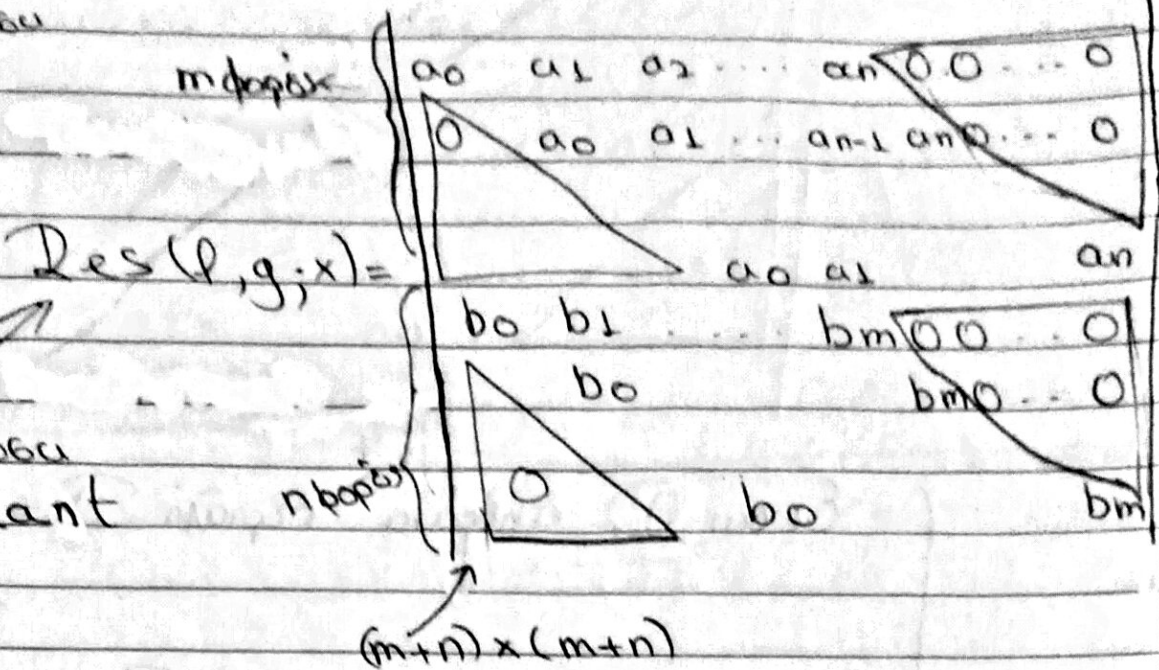 m φορές a0 a1 a2 .... an 0 0 ... 0
0 a0 a1 ... an-1 an 0 ... 0
Res(f,g;x)= a0 a1 an
b0 b1 .... bm 0 0 .. 0
b0 bm 0 .. 0
ant n φορές 0 b0 bm
(m+n)×(m+n)